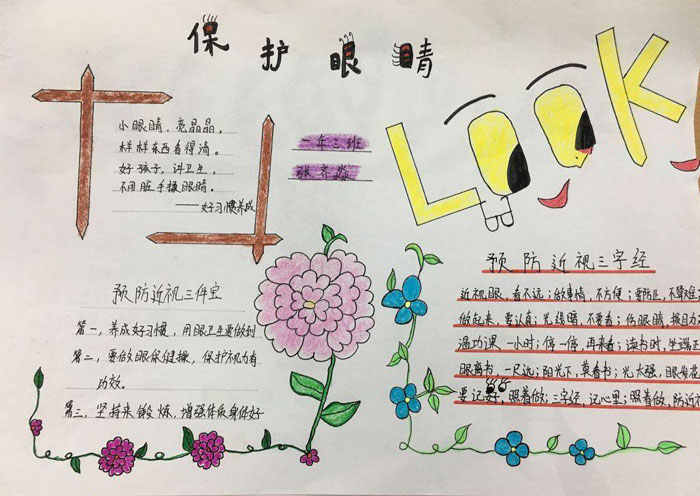 保护眼睛
LOOK
小眼睛，亮晶晶，
样样东西看得清。
好孩子，讲卫生，
不用脏手揉眼睛。
——好习惯养成
一年三班
预防近视三件宝
第一，养成好习惯，用眼卫生要做到
第二，要做眼保健操，保护视力有
功效。
第三，坚持来锻炼，增强体质身体好
预防近视三字经
近视眼，看不远；做事情，不方便；要防止，不算难；
做起来，要认真；光线暗，不要看；伤眼睛，
温功课，一小时；停一停，再来看；读书时，坐端正
眼离书，一尺远；阳光下，莫看书；光太强，眼发花
要记好，照着做；三字经，记心里；照着做，防近视